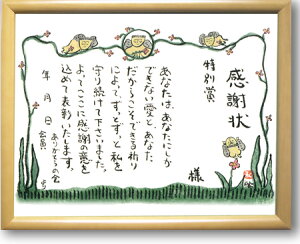 感謝状
特別賞
様
あなたは、あなたにしか
できない愛と、あなた
だからこそできる祈り
によって、ずっとずっと私を
守り続けて下さいました。
よってここに感謝の意を
込めて表彰いたします。
年 月 日
ありがとうの会
会員